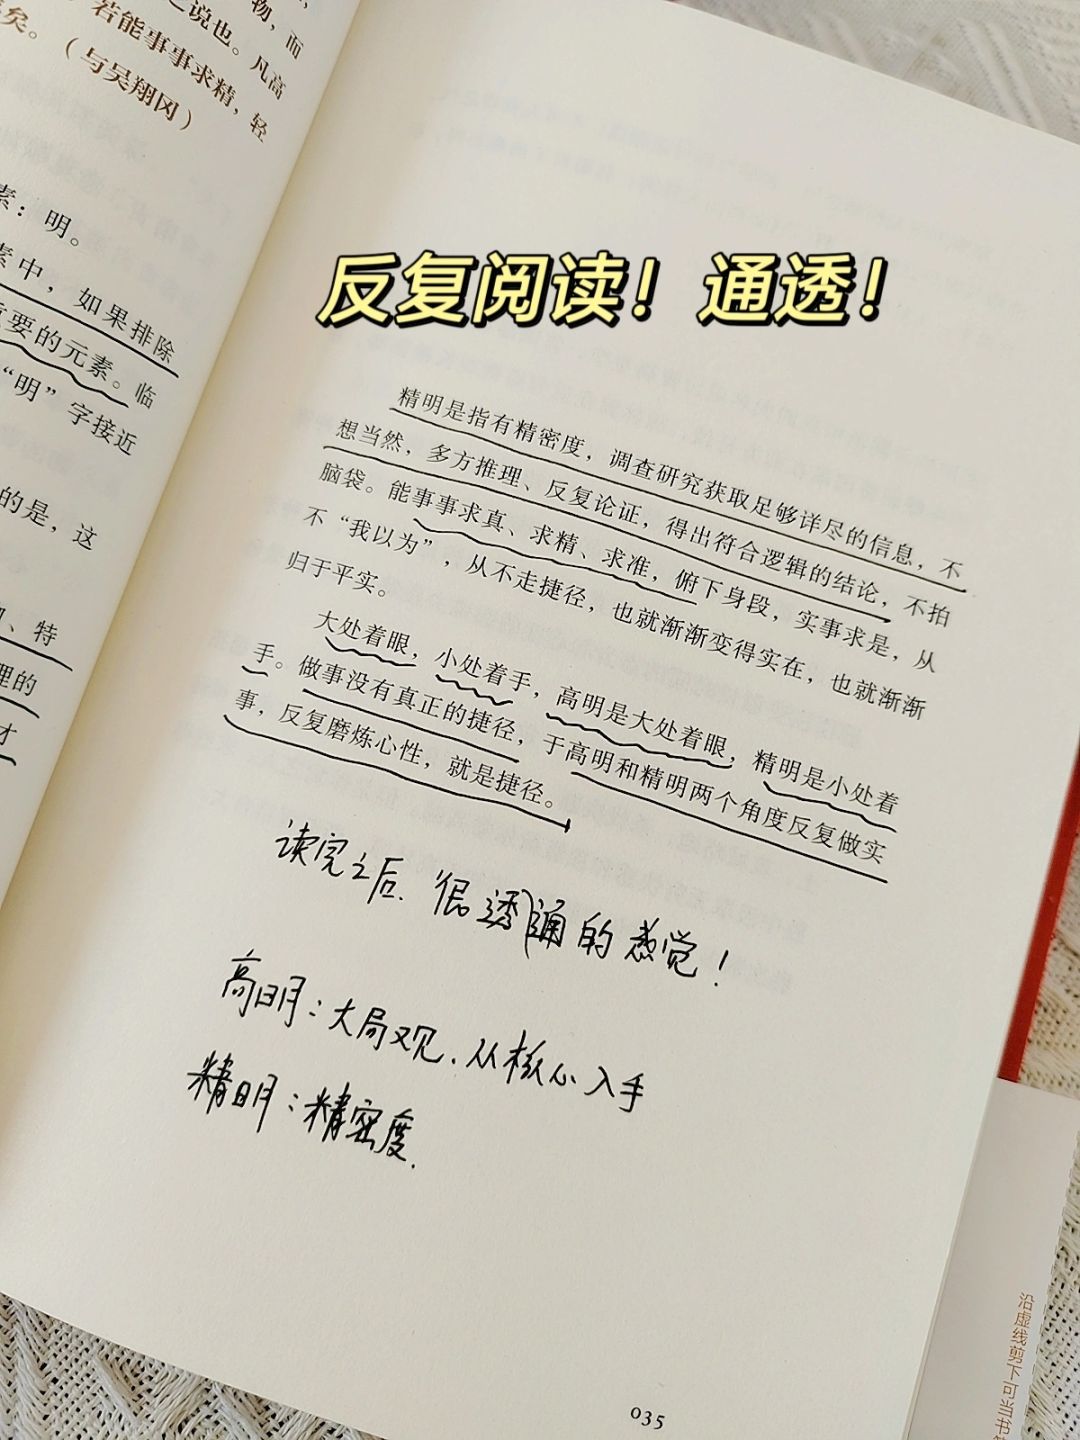 物，而
之说也。凡高
若能事事求精，轻
矣。（与吴翔冈）
素：明。
素中，如果排除
重要的元素。临
“明”字接近
的是，这
、特
理的
才
反复阅读！通透！
精明是指有精密度，调查研究获取足够详尽的信息，不
想当然，多方推理、反复论证，得出符合逻辑的结论，不拍
脑袋。能事事求真、求精、求准，俯下身段，实事求是，从
不“我以为”，从不走捷径，也就渐渐变得实在，也就渐渐
归于平实。
大处着眼，小处着手，高明是大处着眼，精明是小处着
手。做事没有真正的捷径，于高明和精明两个角度反复做实
事，反复磨炼心性，就是捷径。
读完之后、很透通的感觉！
高明：大局观、从核心入手
精明：精密度.
035
沿虚线剪下可当书签